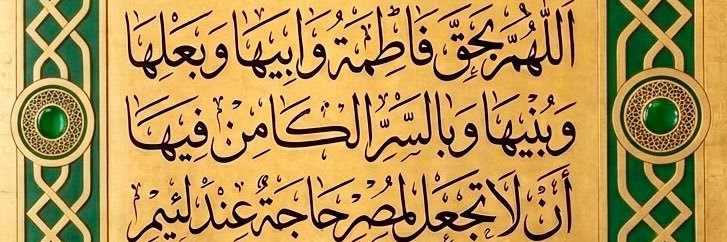 اَللّٰهُمَّ بِحَقِّ فَاطِمَةُ وَابِيهَا وَبَعْلِهَا
وَبُنِيْهَا وَبِالسِّرِّ الْكَامِنِ فِيْهَا
أَنْ لَا تَجْعَلْ لِمِصْرِ حَاجَةً عِنْدَ لَئِيْمٍ